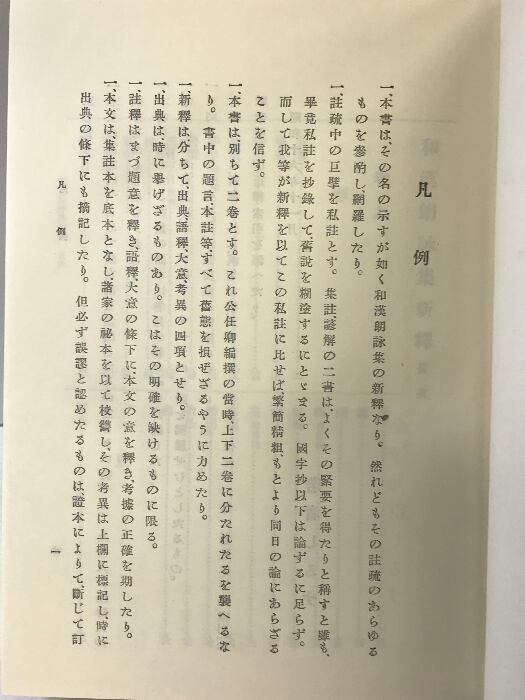 凡例
一、本書は、その名の示すが如く和漢朗詠集の新釋なり。然れどもその註疏のあらゆる
ものを參酌し、網羅したり。
一、註疏中の巨擘を私註とす。集註、諺解の二書は、よくその緊要を得たりと稱すと雖も、
畢竟私註を抄錄して、舊說を糊塗するにとゞまる。國字抄以下は論ずるに足らず。
而して我等が新釋を以てこの私註に比せば、繁簡精粗、もとより同日の論にあらざる
ことを信ず。
一、本書は、別ちて二卷とす。これ公任卿編撰の當時、上下二卷に分たれたるを襲へるな
り。書中の題言、本註等、すべて舊態を損ぜざるやうに力めたり。
一、新釋は分ちて、出典、語釋、大意、考異の四項とせり。
一、出典は、時に擧げざるものあり。こはその明確を缺けるものに限る。
一、註釋はまづ題意を釋き、語釋、大意の條下に、本文の意を釋き、考據の正確を期したり。
一、本文は、集註本を底本となし、諸家の祕本を以て校讐し、その考異は上欄に標記し、時に
出典の條下にも摘記したり。但必ず誤謬と認めたるものは、證本によりて、斷じて訂
凡例
一